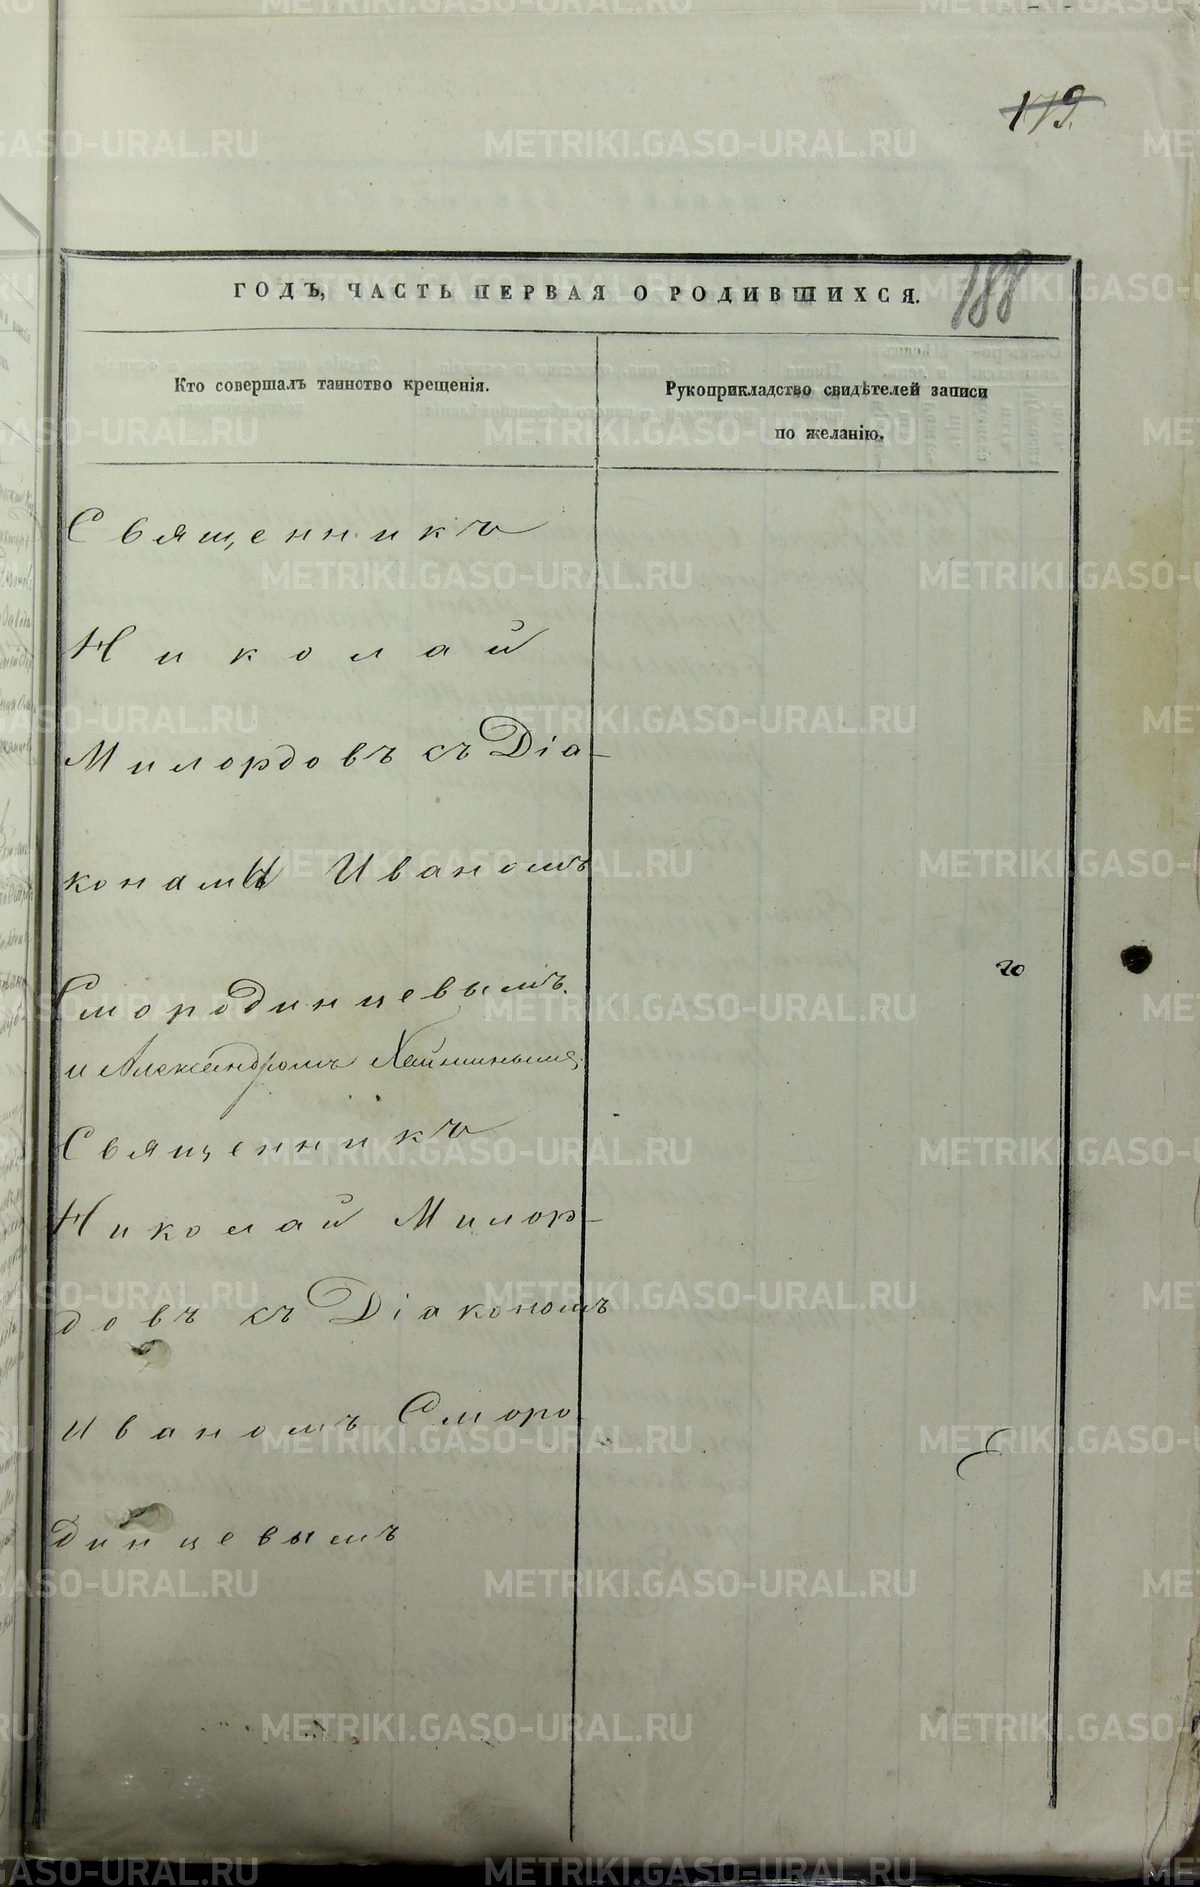 179.
188
ГОДЪ, ЧАСТЬ ПЕРВАЯ О РОДИВШИХСЯ.
Кто совершалъ таинство крещенія.
Рукоприкладство свидѣтелей записи
по желанію.
Священникъ
Николай
Милордовъ съ Діа-
конами Иваномъ
Смородинцевымъ.
и Александромъ
Священникъ
Николай Милор-
довъ съ Діакономъ
Иваномъ Сморо-
динцевымъ
METRIKI.GASO-URAL.RU